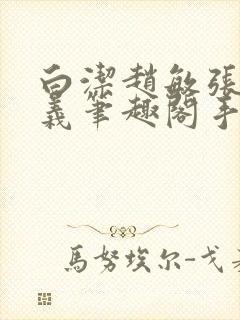 白潔趙敏張
義筆趣閣手
馬努埃尔-戈